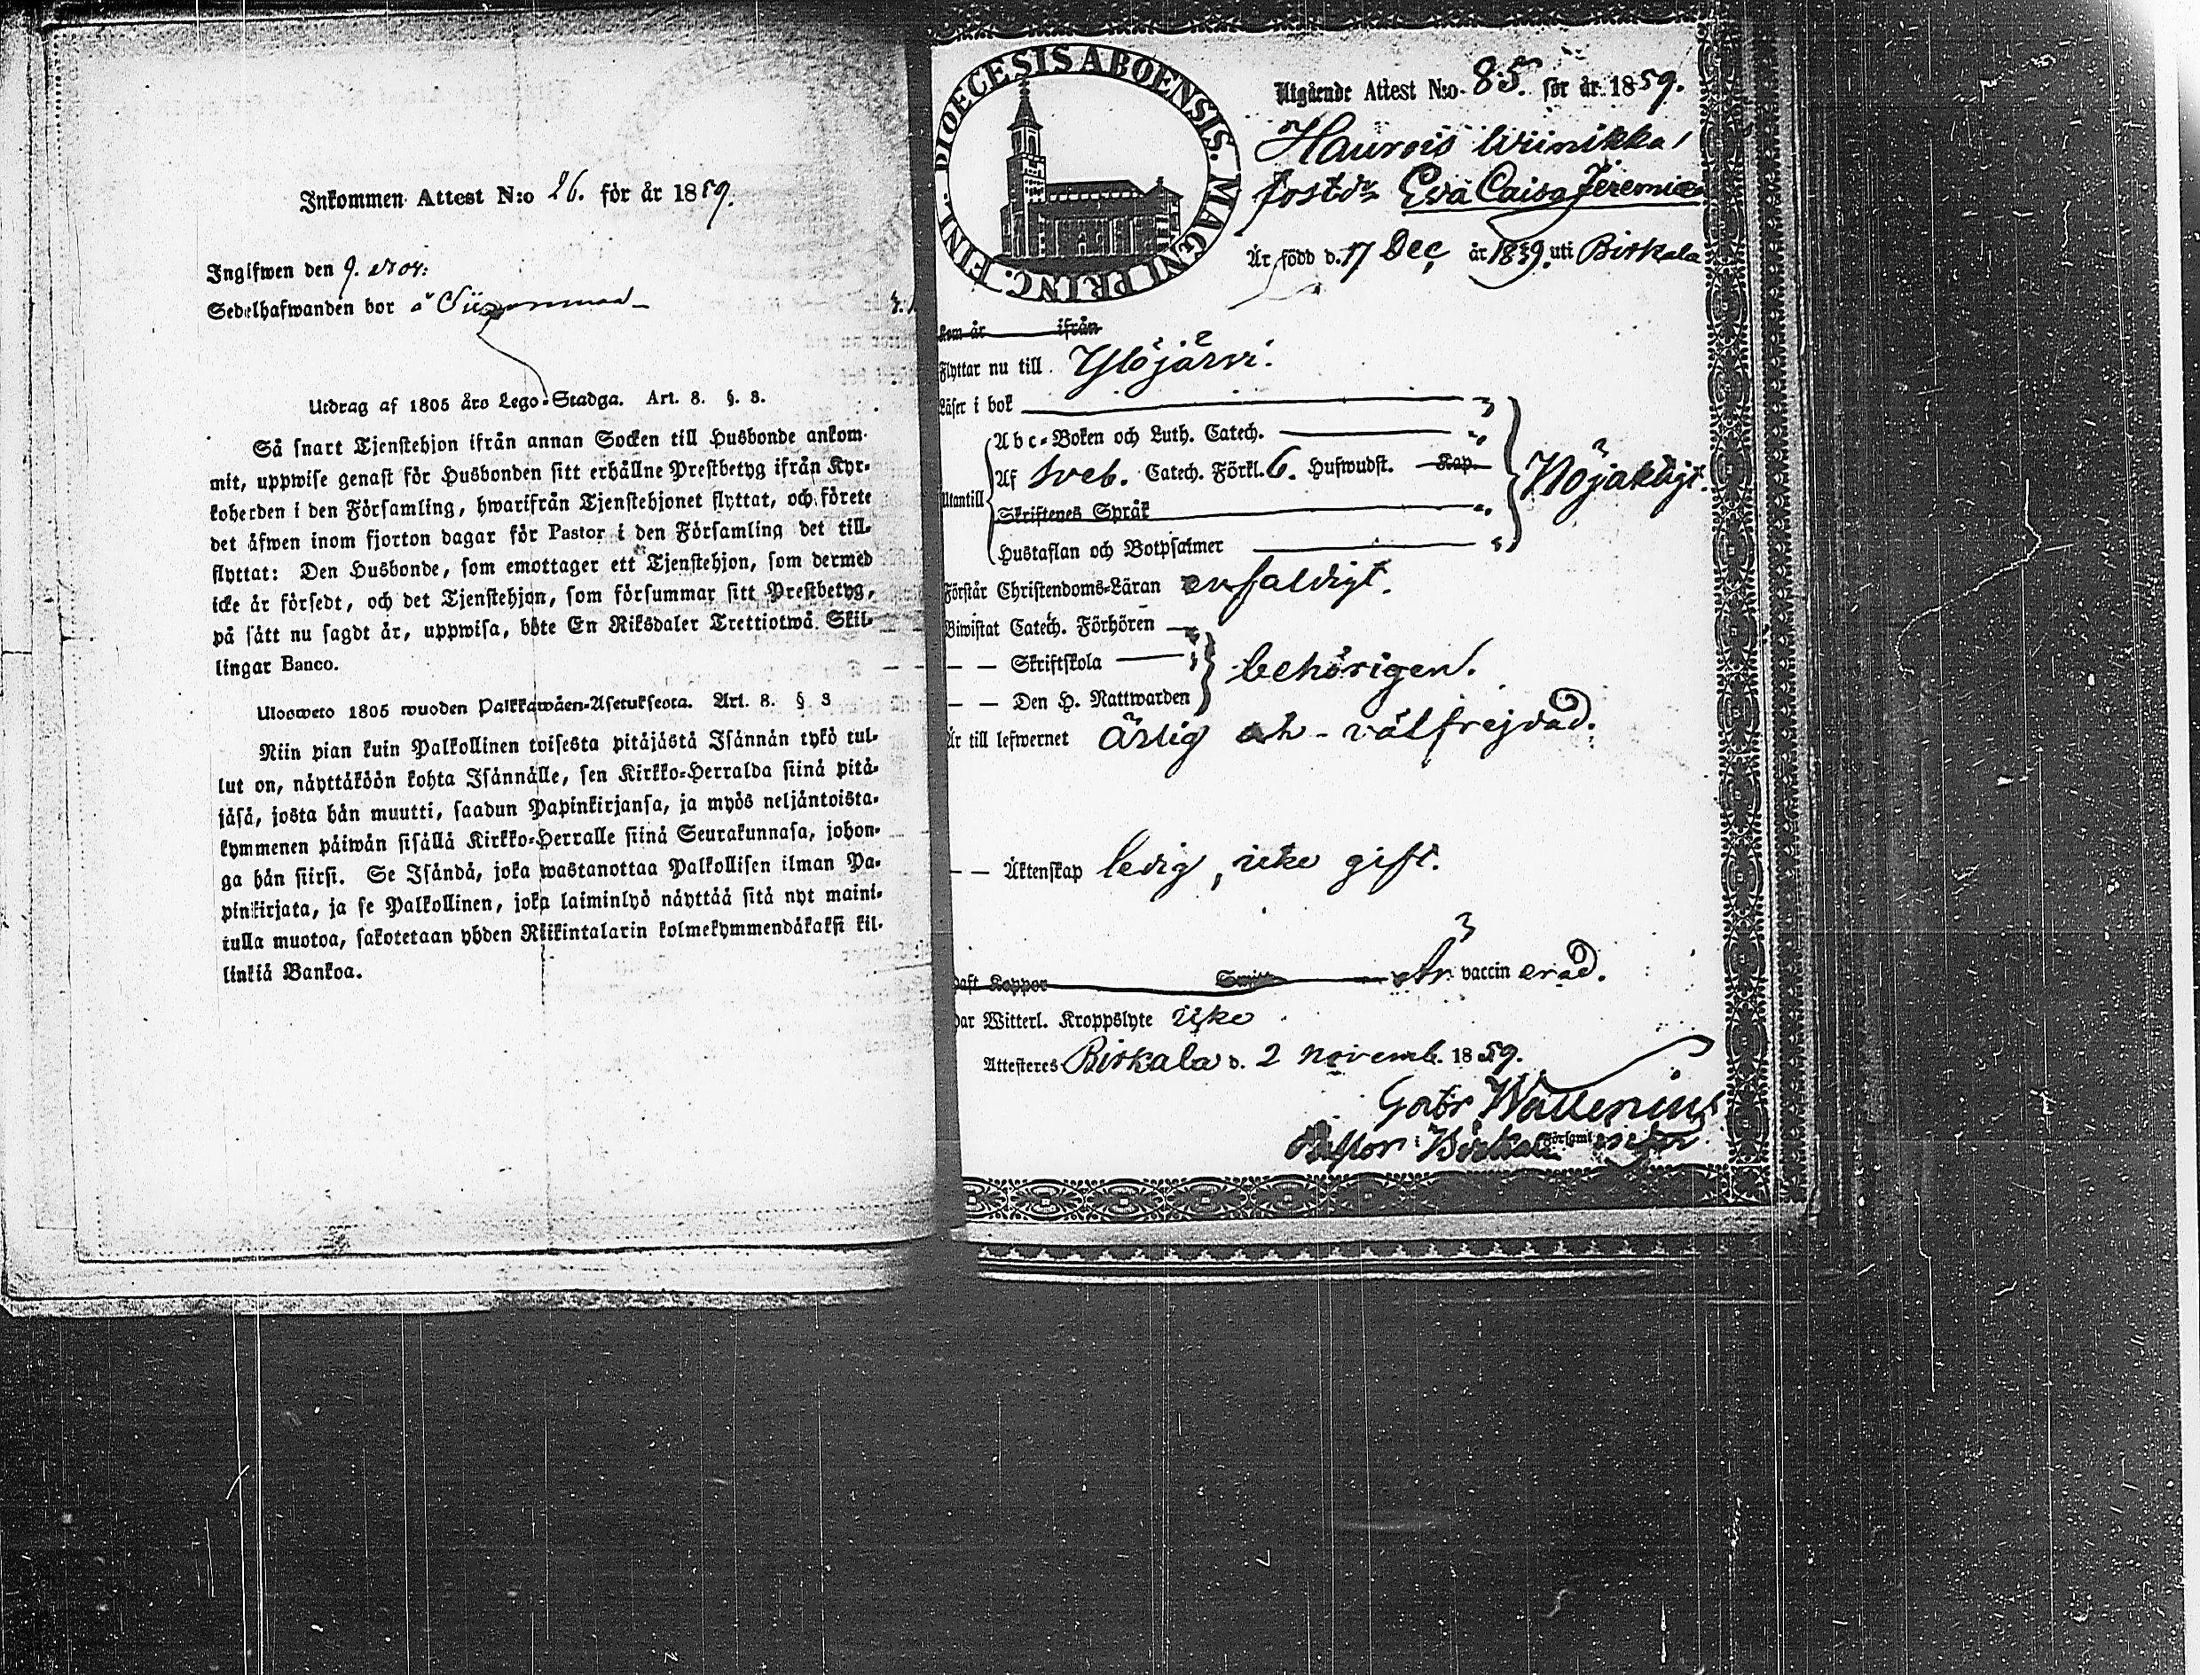 Inkommen Attest N:o 26. för år 1859.
Ingifwen den 9. Nov:
Sedelhafwanden bor å
Utdrag af 1805 års Lego-Stadga. Art. 8. §. 3.
Så snart Tjenstehjon ifrån annan Socken till Husbonde ankom-
mit, uppwise genast för Husbonden sitt erhållne Prestbetyg ifrån Kyr-
koherden i den Församling, hwarifrån Tjenstehjonet flyttat, och förete
det äfwen inom fjorton dagar för Pastor i den Församling det till-
flyttat: Den Husbonde, som emottager ett Tjenstehjon, som dermed
icke är försedt, och det Tjenstehjon, som försummar sitt Prestbetyg,
på sätt nu sagdt är, uppwisa, böte En Riksdaler Trettiotwå Skil-
lingar Banco.
Ulosweto 1805 wuoden Palkkawäen-Asetuksesta. Art. 8. § 3
Niin pian kuin Palkollinen toisesta pitäjästä Isännän tykö tul-
lut on, näyttäköön kohta Isännälle, sen Kirkko-Herralda siinä pitä-
jäsä, josta hän muutti, saadun Papinkirjansa, ja myös neljäntoista-
kymmenen päiwän sisällä Kirkko-Herralle siinä Seurakunnasa, johon-
ga hän siirsi. Se Isändä, joka wastanottaa Palkollisen ilman Pa-
pinkirjata, ja se Palkollinen, joka laiminlyö näyttää sitä nyt maini-
tulla muotoa, sakotetaan yhden Riikintalarin kolmekymmendäkaksi kil-
linkiä Bankoa.
DIOECESIS ABOENSIS. MAGNI PRINC. FINL.
Utgående Attest N:o 85. för år 1859.
Haurois Wiinikka,
fostdr Eva Caisa Jeremiæ
Är född d. 17 Dec. år 1839. uti Birkala
kom år ifrån
Flyttar nu till Ylöjärvi.
Läser i bok
Abc-Boken och Luth. Catech.
Utantill Af Sveb. Catech. Förkl. 6. Hufwudst. Kap. Nöjaktigt.
Skriftenes Språk
Hustaflan och Botpsalmer
Förstår Christendoms-Läran enfaldigt.
Biwistat Catech. Förhören
— — Skriftskola behörigen.
— — Den H. Nattwarden
Är till lefwernet ärlig och välfrejdad.
— — Äktenskap ledig, icke gift.
Haft Koppor Smitt Är vaccin erad.
Har Witterl. Kroppslyte icke
Attesteres Birkala d. 2 novemb. 1859.
Gabr Wallenius
Pastor i Birkala församl